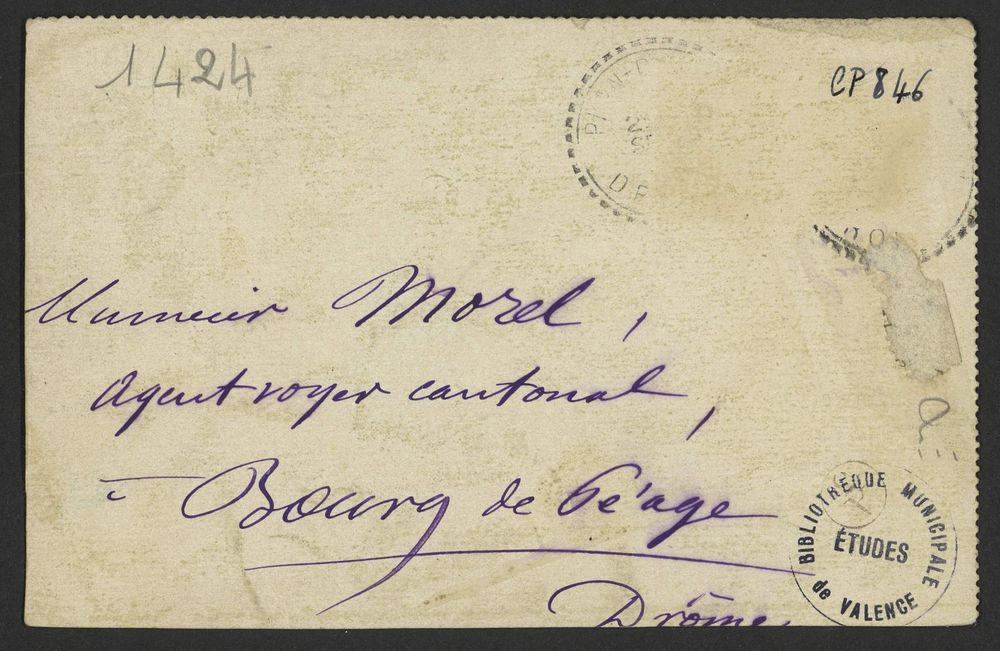 1424
CP 846
Monsieur Morel,
Agent voyer cantonal,
à Bourg de Péage
Drôme
BIBLIOTHÈQUE MUNICIPALE
ÉTUDES
de VALENCE